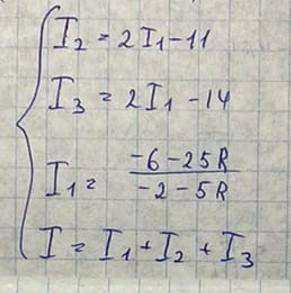 I₂ = 2I₁ - 11
I₃ = 2I₁ - 14
I₁ = (-6 - 25R) / (-2 - 5R)
I = I₁ + I₂ + I₃